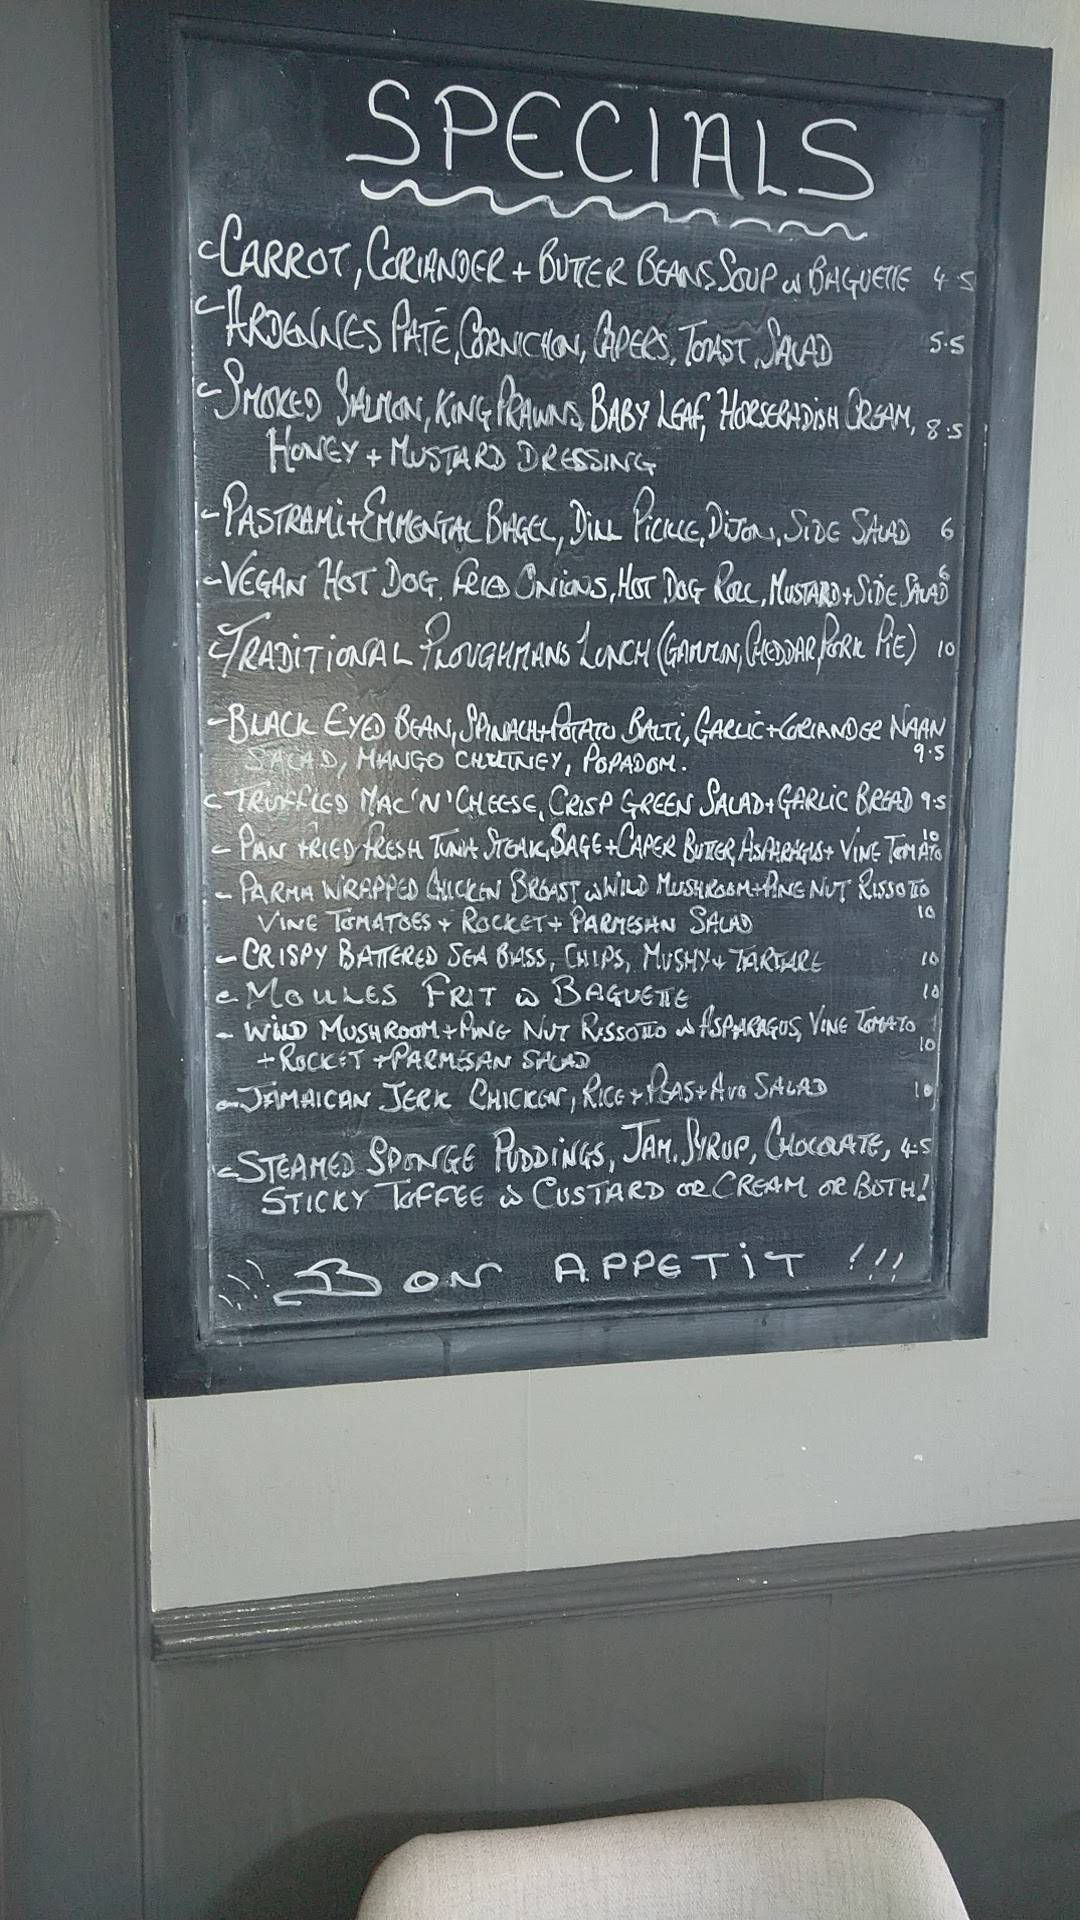 SPECIALS
- CARROT, CORIANDER + BUTTER BEANS SOUP w BAGUETTE 4.5
- ARDENNES PATÉ, CORNICHON, CAPERS, TOAST, SALAD 5.5
- SMOKED SALMON, KING PRAWNS, BABY LEAF, HORSERADISH CREAM, 8.5
HONEY + MUSTARD DRESSING
- PASTRAMI + EMMENTAL BAGEL, DILL PICKLE, DIJON, SIDE SALAD 6
- VEGAN HOT DOG, FRIED ONIONS, HOT DOG ROLL, MUSTARD + SIDE SALAD 6
- TRADITIONAL PLOUGHMANS LUNCH (GAMMON, CHEDDAR, PORK PIE) 10
- BLACK EYED BEAN, SPINACH + POTATO BALTI, GARLIC + CORIANDER NAAN
SALAD, MANGO CHUTNEY, POPADOM. 9.5
- TRUFFLED MAC'N'CHEESE, CRISP GREEN SALAD + GARLIC BREAD 9.5
- PAN FRIED FRESH TUNA STEAK, SAGE + CAPER BUTTER, ASPARAGUS + VINE TOMATO 10
- PARMA WRAPPED CHICKEN BREAST w WILD MUSHROOM + PINE NUT RISSOTTO
VINE TOMATOES + ROCKET + PARMESAN SALAD 10
- CRISPY BATTERED SEA BASS, CHIPS, MUSHY + TARTARE 10
- MOULES FRIT w BAGUETTE 10
- WILD MUSHROOM + PINE NUT RISSOTTO w ASPARAGUS, VINE TOMATO
+ ROCKET + PARMESAN SALAD 10
- JAMAICAN JERK CHICKEN, RICE + PEAS + AVO SALAD 10
- STEAMED SPONGE PUDDINGS, JAM, SYRUP, CHOCOLATE, 4.5
STICKY TOFFEE w CUSTARD OR CREAM OR BOTH!
BON APPETIT !!!